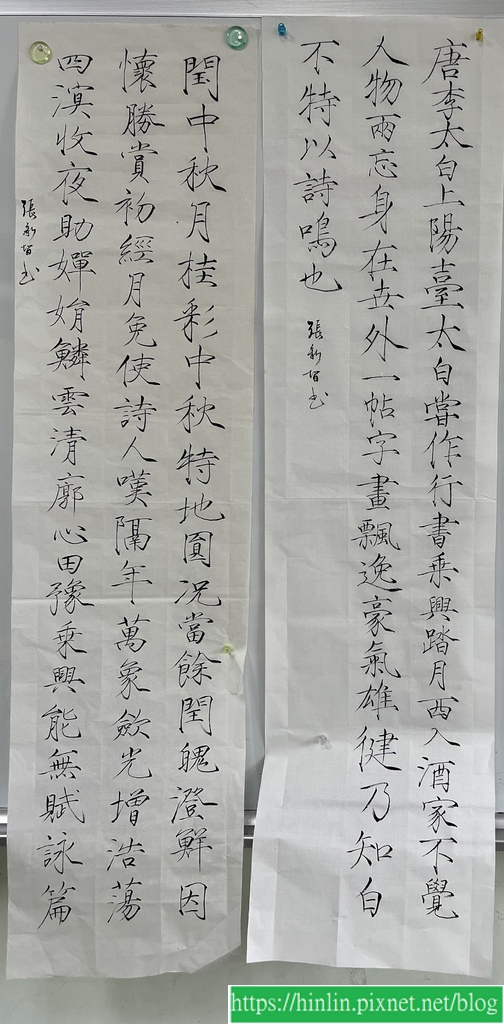 唐李太白上陽臺太白嘗作行書乘興踏月西入酒家不覺
人物兩忘身在世外一帖字畫飄逸豪氣雄健乃知白
不特以詩鳴也
張新智書
閏中秋月桂彩中秋特地圓況當餘閏魄澄鮮因
懷勝賞初經月免使詩人嘆隔年萬象斂光增浩蕩
四溟收夜助嬋娟鱗雲清廓心田豫乘興能無賦詠篇
張新智書
https://hinlin.pixnet.net/blog